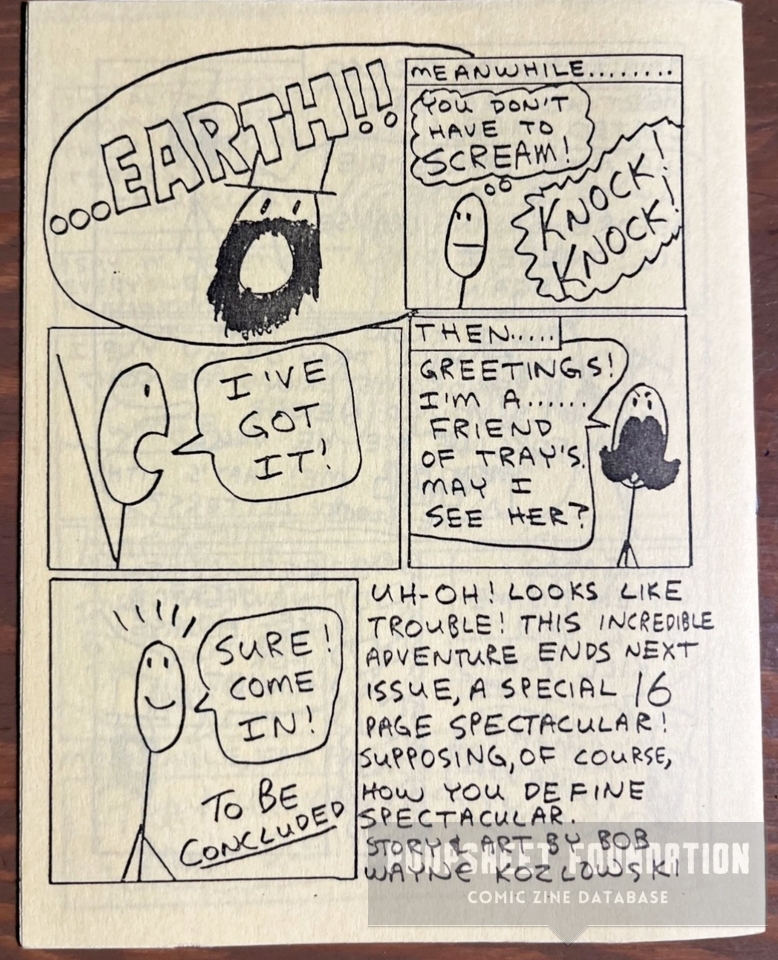 ...EARTH!!
MEANWHILE........
YOU DON'T
HAVE TO
SCREAM!
KNOCK!
KNOCK!
I'VE
GOT
IT!
THEN.....
GREETINGS!
I'M A......
FRIEND
OF TRAY'S.
MAY I
SEE HER?
SURE!
COME
IN!
TO BE
CONCLUDED
UH-OH! LOOKS LIKE
TROUBLE! THIS INCREDIBLE
ADVENTURE ENDS NEXT
ISSUE, A SPECIAL 16
PAGE SPECTACULAR!
SUPPOSING, OF COURSE,
HOW YOU DEFINE
SPECTACULAR.
STORY & ART BY BOB
WAYNE KOZLOWSKI
FOUNDATION
COMIC ZINE DATABASE